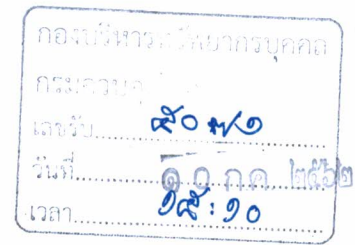 กองบริหารทรัพยากรบุคคล
กรมควบคุ
เลขรับ
วันที่ ๑๐ ก.ค. ๒๕๖๒
เวลา ๑๕:๑๐